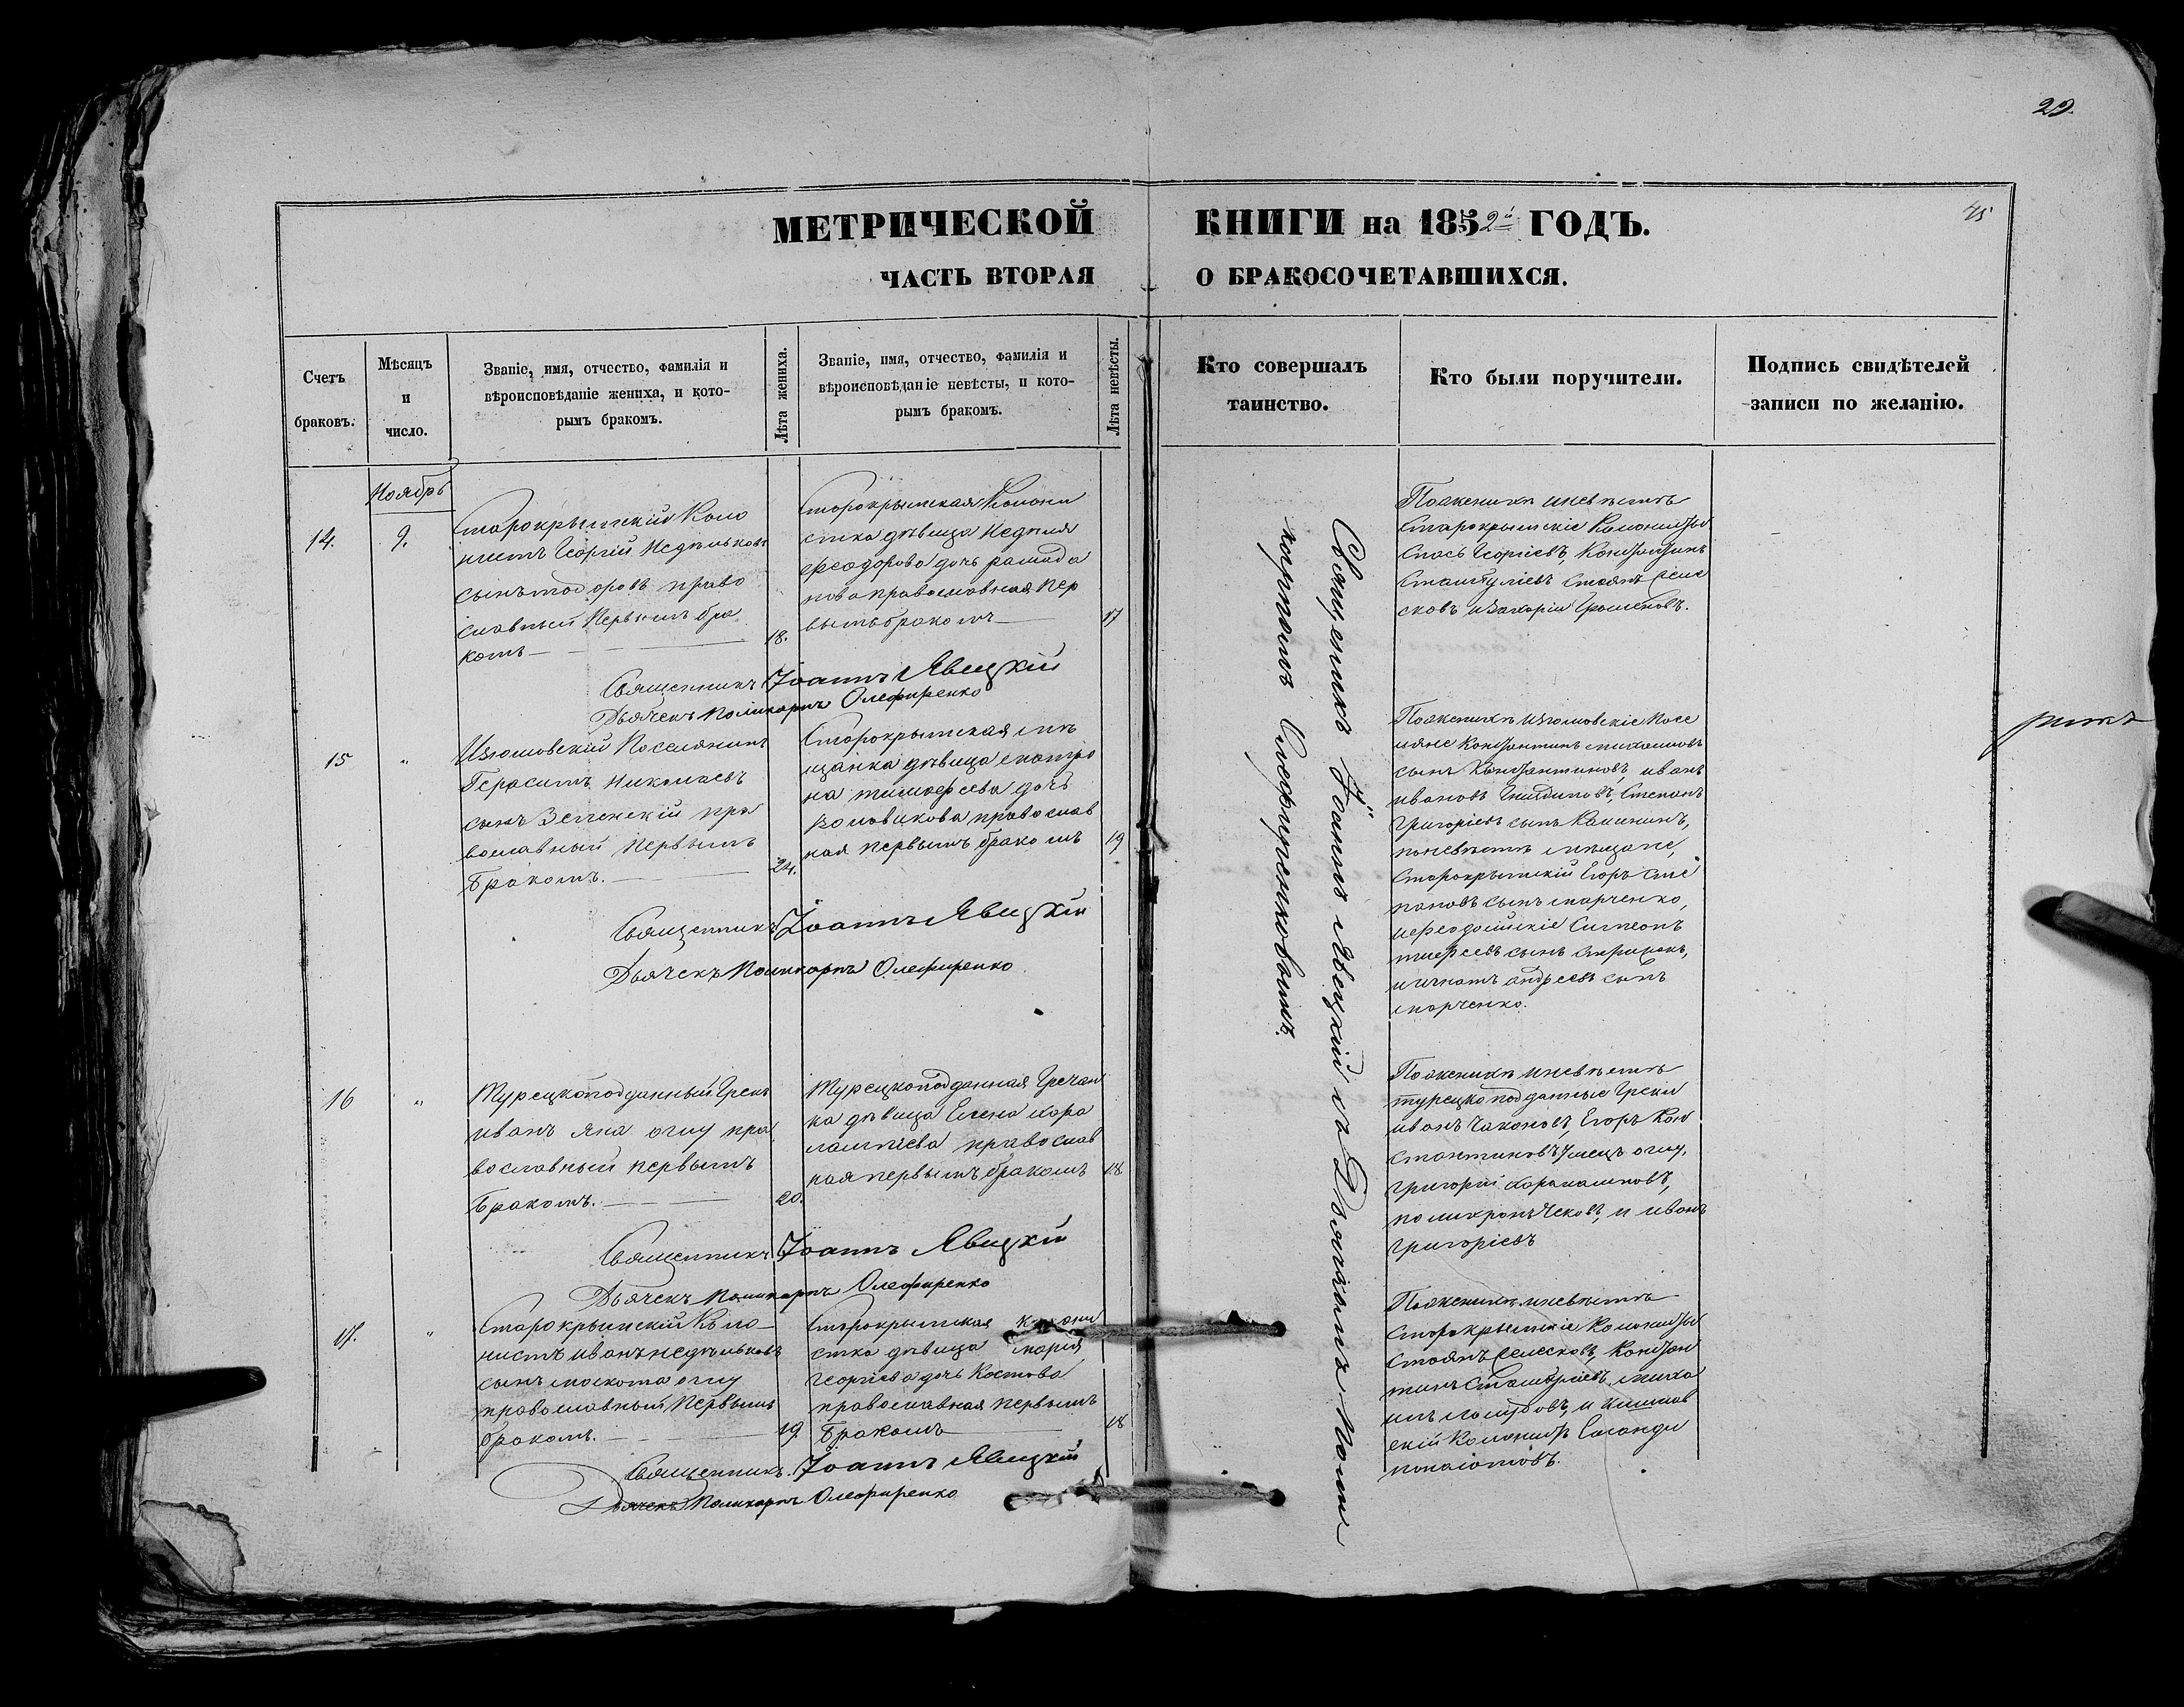 29.
45
МЕТРИЧЕСКОЙ КНИГИ на 1852й ГОДЪ.
ЧАСТЬ ВТОРАЯ О БРАКОСОЧЕТАВШИХСЯ.
Счетъ браковъ.
Мѣсяцъ и число.
Званіе, имя, отчество, фамилія и
вѣроисповѣданіе жениха, и кото-
рымъ бракомъ.
Лѣта жениха.
Званіе, имя, отчество, фамилія и
вѣроисповѣданіе невѣсты, и кото-
рымъ бракомъ.
Лѣта невѣсты.
Кто совершалъ
таинство.
Кто были поручители.
Подпись свидѣтелей
записи по желанію.
Ноябрь
14.
9.
Старокрымскій Коло
нистъ Георгій Недѣльковъ
сынъ тодоровъ право
славный Первымъ бра
комъ
18.
Старокрымская Колони
стка дѣвица Недѣля
феодорова дочь
православная Пер
вымъ бракомъ
17
Поженихѣ иневѣстѣ
Старокрымскіе Колонисты
Спасъ Георгіевъ, Константинъ
Стоянъ
Священникъ Іоаннъ Явецкій
Дьячекъ Поликарпъ Олефиренко
15
"
Изюмовскій Поселянинъ
Герасимъ Николаевъ
сынъ Зеленскій пра
вославный Первымъ
Бракомъ.
24.
Старокрымская мѣ
щанка дѣвица екатри
на тимофеева дочь
православ
ная первымъ бракомъ
19
Поженихѣ Изюмовскіе Посе
ляне Константинъ михайловъ
сынъ Константиновъ, иванъ
ивановъ Степанъ
Григоріевъ сынъ Калининъ,
поневѣстѣ мѣщане,
Старокрымскій Егоръ сте
пановъ сынъ марченко,
Симеонъ
сынъ
игнатъ андреевъ сынъ
марченко.
Священникъ Іоаннъ Явецкій
Дьячекъ Поликарпъ Олефиренко
16
"
Турецкоподданный Грекъ
иванъ яни оглу пра
вославный первымъ
Бракомъ.
20.
Турецкоподданная Гречан
ка дѣвица Елена хара
лампіева православ
ная первымъ бракомъ
18
Поженихѣ иневѣстѣ
турецкоподданные Греки
иванъ Егоръ Кон
стантиновъ оглу,
григорій
и иванъ
григоріевъ
Священникъ Іоаннъ Явецкій
Дьячекъ Поликарпъ Олефиренко
17.
"
Старокрымскій Коло
нистъ иванъ недѣльковъ
сынъ оглу
православный Первымъ
бракомъ.
19.
Старокрымская колони
стка дѣвица марія
георгіева дочь Костова
православная первымъ
Бракомъ
18
Поженихѣ иневѣстѣ
Старокрымскіе Колонисты
Стоянъ Констан
тинъ миха
илъ и кишлав
скій Колонистъ
Священникъ Іоаннъ Явецкій
Дьячекъ Поликарпъ Олефиренко
Священникъ Іоаннъ Явецкій съ Дьячкомъ Поли
карпомъ Олефиренковымъ.